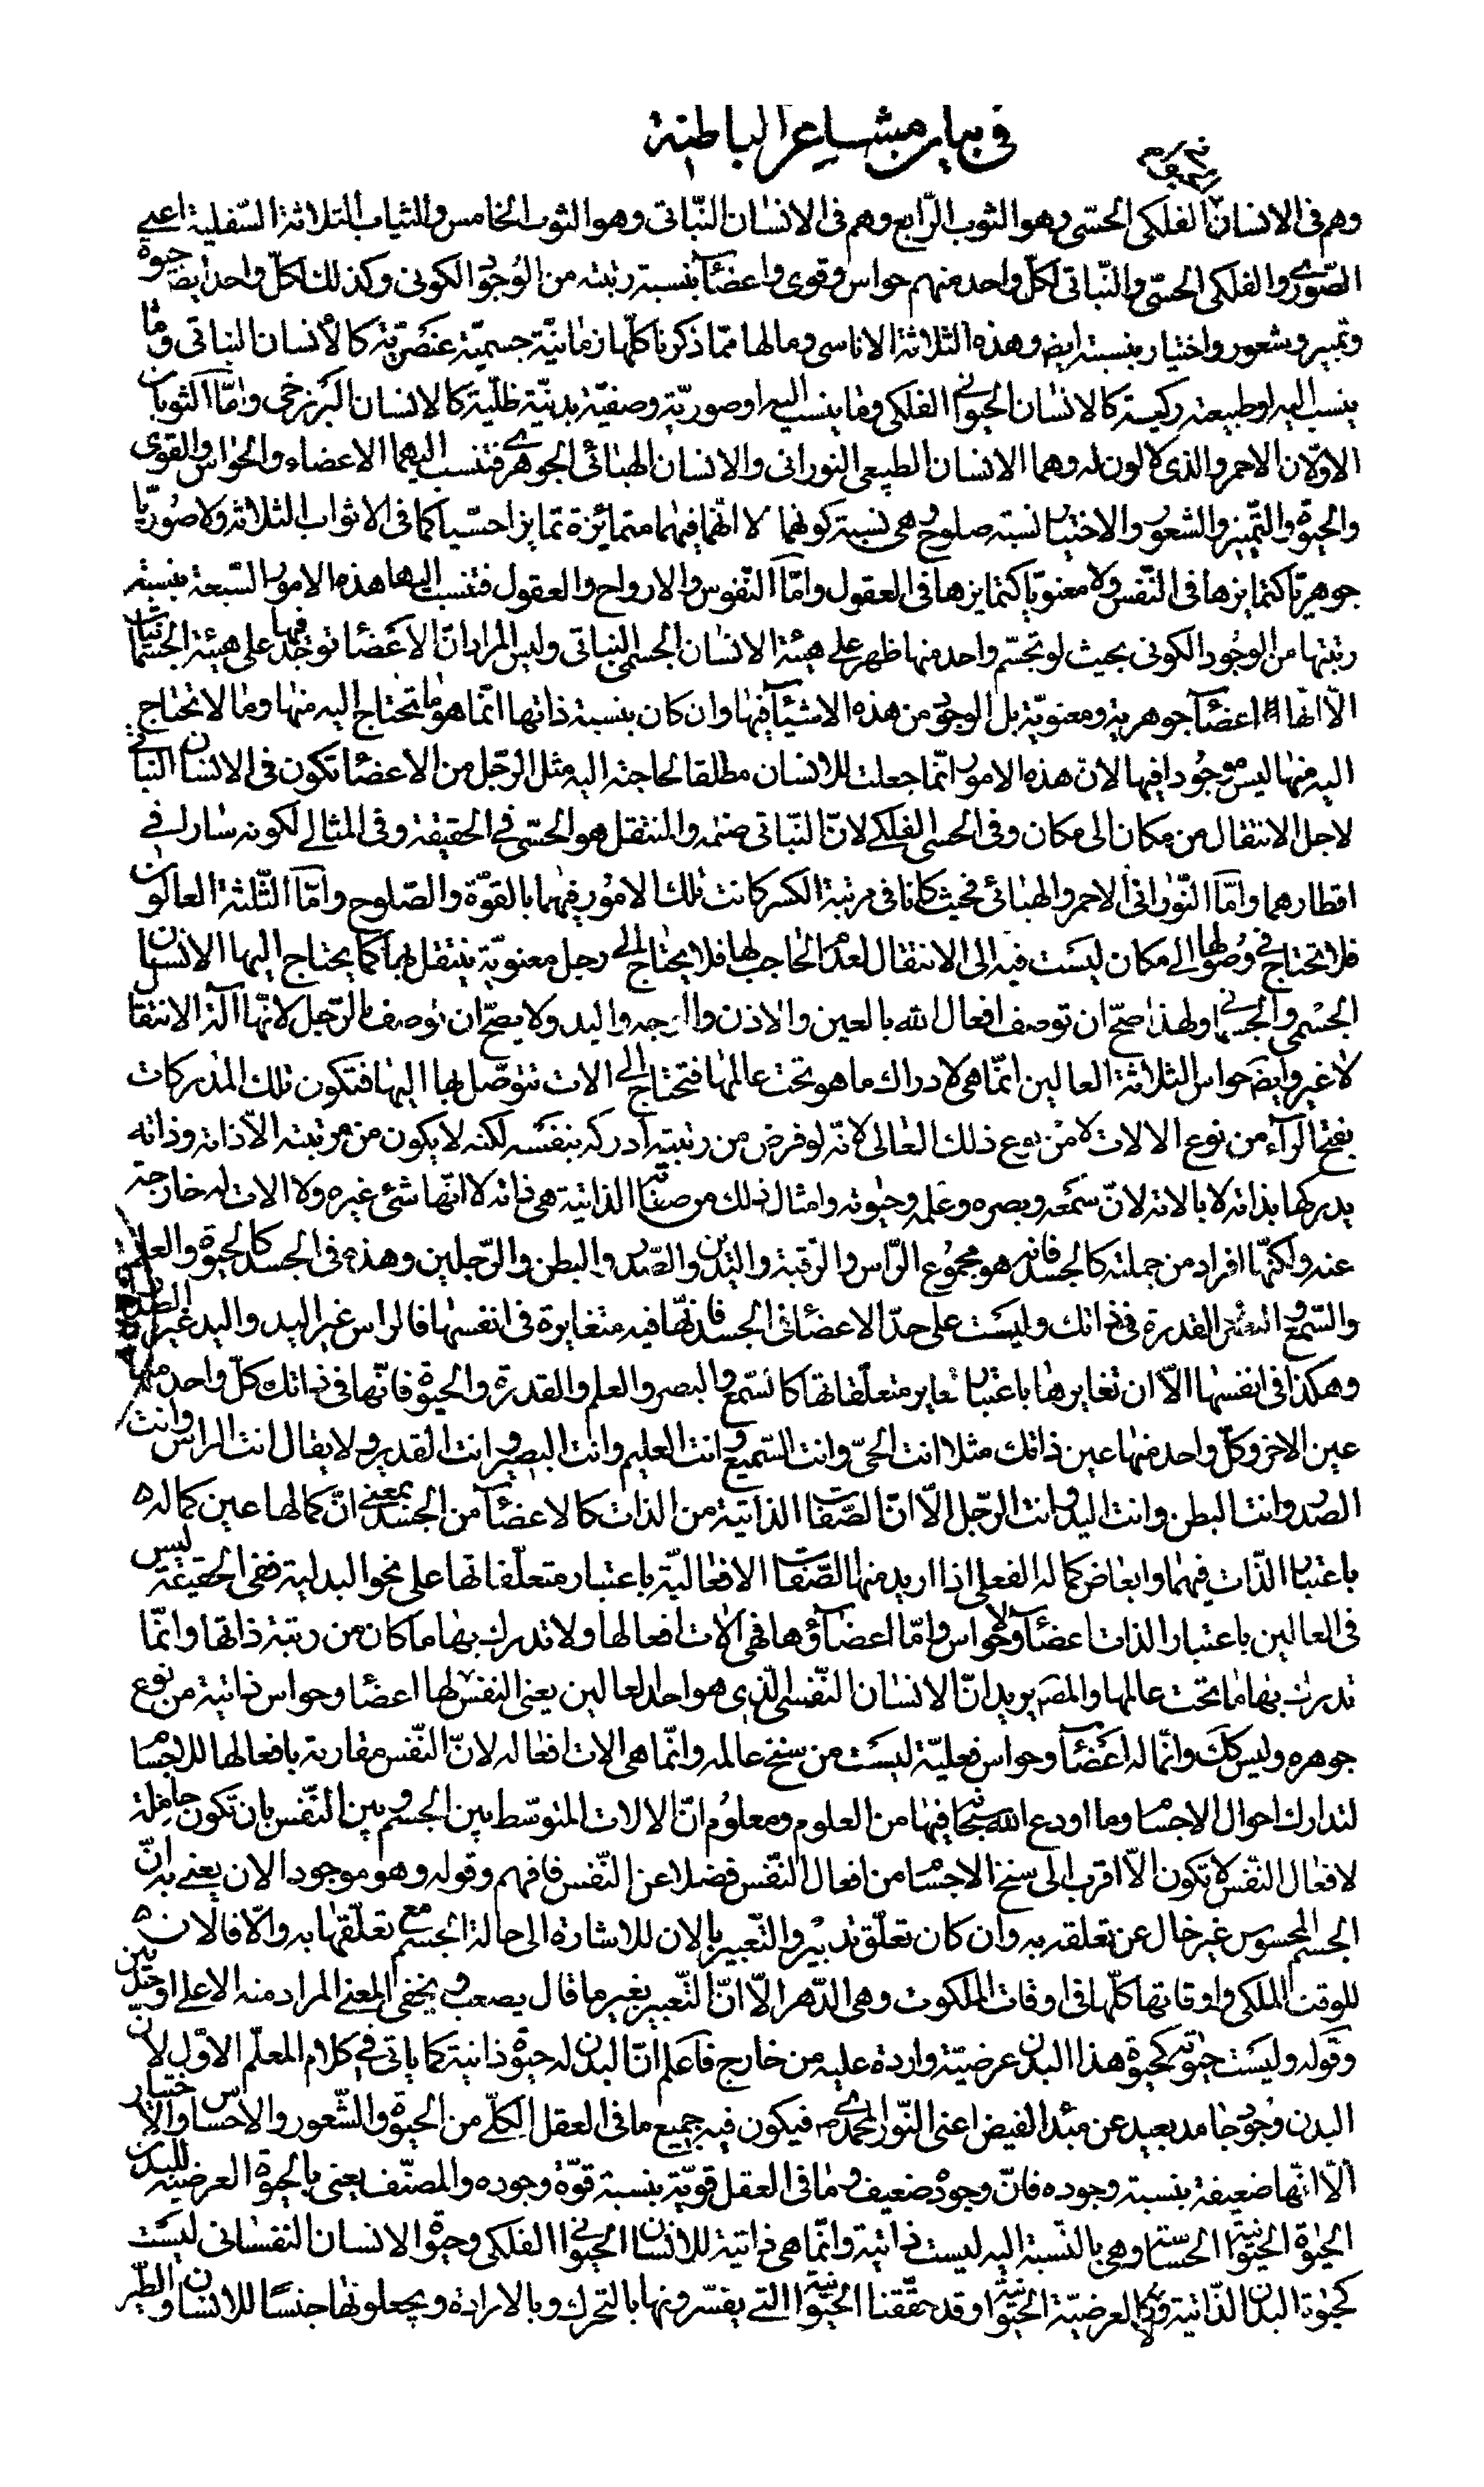 في بيان مشاعر الباطنة
وهم في الانسان الفلكى الحسّى وهو الثوب الرّابع وهم في الانسان النّباتى وهو الثوب الخامس وللثياب الثلاثة السّفلية اعنى
الصّورى والفلكى الحسّى والنّباتى لكلّ واحد منهم حواس وقوى واعضآء بنسبة رتبته من الوُجود الكونى وكذلك لكلّ واحد ايضا حيوة
وتميير وشعور واختيار بنسبته ايضا وهذه الثلاثة الاناسى وما لها ممّا ذكرنا كلّها زمانيّة جسميّة عنصريّة كالأنسان النباتى وما
ينسب اليه او طبيعته ركيسة كالانسان الحيوانى الفلكى وما ينسب اليه او صوريّة وصفيّة بدنيّة ظلّية كالانسان البرزخى وامّا الثوبان
الاوّلان الاحمر والذى لا لون له وهما الانسان الطبيعى النورانى والانسان الهبائى الجوهرى فتنسب اليهما الاعضاء والحواس والقوى
والحيوة والتّمييز والشعور والاختيار نسبة صلوح هى نسبة كونهما لا انّها فيهما متمائزة تمايزا حسّيا كما فى الاثواب الثلاثة ولا صُوريّا
جوهريّا كتمايزها فى النّفس ولا معنويّا كتمايزها فى العقول وامّا النّفوس والارواح والعقول فتنسب اليها هذه الامور السّبعة بنسبة
رتبتها من الوجود الكونى بحيث لو تجسّم واحد منها ظهر على هيئة الانسان الجسمى النباتى وليس المراد انّ الاعضآء توجد فيها على هيئة الجسمانيات
الّا انّها اعضآء جوهرية ومعنويّة بل الوجود من هذه الاشيآء فيها وان كان بنسبة ذاتها انّما هو ما تحتاج اليه منها وما لا تحتاج
اليه منها ليس موجُودا فيها لان هذه الامور انّما جعلت للانسان مطلقا لحاجته اليه مثل الرّجل من الاعضآء تكون فى الانسان النباتى
لاجل الانتقال من مكان الى مكان وفى الحسى الفلكى لانّ النّباتى صنمه والمنتقل هو الحسّى فى الحقيقة وفى المثالى لكونه ساريا فى
اقطارهما وامّا النّورانى الاحمر والهبائى فحيث كانا فى مرتبة الكسر كانت تلك الامُور فيهما بالقوّة والصّلوح وامّا الثّلثة العالون
فلا تحتاج فى وصُولها الى مكان ليسَت فيه الى الانتقال لعدَم الحاجب لها فلا يحتاج الى رجل معنويّة ينتقل بها كما يحتاج اليها الانسان
الجسْمى والجسمانى ولهذا صحّ ان توصف افعال الله بالعين والاذن والوجه واليد ولا يصحّ ان توصف بالرّجل لانّها آلة الانتقا
لا غير وايضا حواس الثلاثة العالين انّما هى لادراك ما هو تحت عالمها فتحتاج الى الات تتوصّل بها اليها فتكون تلك المدركات
بفتح الرآء من نوع الالات لا من نوع ذلك العالى لانّه لو فرض من رتبته ادركه بنفسه لكنه لا يكون من مرتبته الّا ذاته وذاته
يدركها بذاته لا بالاته لانّ سَمْعه وبصره وعلمه وحيوته وامثال ذلك من صفاته الذاتية هى ذاته لا انّها شئ غيره ولا الات له خارجة
عنه ولكنّها افراد من جملته كالجسد فانّه هو مجموع الرّاس والرّقبة واليدين والصّدر والبطن والرّجلين وهذه فى الجسد كالحيوة والعلم
والسّمع والبصر والقدرة فى ذاتك وليسَت على حدّ الاعضآء فى الجسد فانّها فيه متغايرة فى انفسها فالراس غير اليد واليد غير الصّدر
وهكذا فى انفسها الّا ان تغايرها باعتبار تغاير متعلّقاتها كالسّمع والبصر والعلم والقدرة والحيوة فانّها فى ذاتك كلّ واحد منها
عين الاخر وكلّ واحد منها عين ذاتك مثلا انت الحىّ وانت السّميع وانت العليم وانت البصير وانت القدير ولا يقال انت الراس وانت
الصدر وانت البطن وانت اليد وانت الرّجل الّا انّ الصّفات الذاتيّة من الذات كالاعضآء من الجسد بمعنى انّ كمالها عين كماله
باعتبار الذّات فيهما وابعاض كماله الفعلى اذا اريد منها الصّفات الافعاليّة باعتبار متعلّقاتها على نحو البدلية ففى الحقيقة ليس
فى العالين باعتبار الذات اعضآء ولا حواس وامّا اعضآؤها فهى الات افعالها ولا تدرك بها ما كان من رتبة ذاتها وانّما
تدرك بها ما تحت عالمها والمصَ يريد انّ الانسان النّفسى الّذى هو احد العالين يعنى النفس لها اعضا وحواس ذاتية من نوع
جوهره وليس كك وانّما له اعضآء وحواس فعليّة ليسَت من سنخ عالمه وانّما هى الات افعاله لانّ النّفس مقارنة بافعالها للاجسَام
لتدارك احوال الاجسام وما اودع الله سبحانه فيها من العلوم ومعلوم انّ الالات المتوسّط بين الجسم وبين النّفس بان تكون حاملة
لافعال النّفس لا تكون الّا اقرب الى سنخ الاجسام من افعال النّفس فضلا عن النّفس فافهم وقوله وهو موجود الان يعنى به انّ
الجسم المحسوس غير خال عن تعلقه به وان كان تعلّق تدبير والتّعبير بالان للاشارة الى حالة الجسم مع تعلّقها به والّا فالان
للوقت الملكى واوقاتها كلّها فى اوقات الملكوت وهى الدّهر الّا انّ التّعبير بغير ما قال يصعب ويخفى المعنى المراد منه الا على اوحديّين
وقوله وليسَت حيوته كحيوة هذا البدن عرضيّة واردة عليه من خارج فاعلم انّ البدن له حيوة ذاتية كما ياتى فى كلام المعلّم الاوّل لانّ
البدن وُجود جامد بعيد عن مبدء الفيض اعنى النّور المحمّدى ص فيكون فيه جميع ما فى العقل الكلّى من الحيوة والشّعور والاحساس والاختيار
الّا انّها ضعيفة بنسبة وجوده فانّ وجوده ضعيف وما فى العقل قويّة بنسبة قوّة وجوده والمصنّف يعنى بالحيوة العرضيّة للبدن
الحيٰوة الحيوانية الحسّاسة وهى بالنّسبة اليه ليست ذاتية وانّما هى ذاتية للانسان الحيوانى الفلكى وحيوة الانسان النفسانى ليسَت
كحيوة البدن الذّاتية ولا كالعرضيّة الحيوانية وقد حقّقنا الحيوانية التى يفسّرونها بالتحرك وبالارادة ويجعلونها جنسًا للانسان والطّير